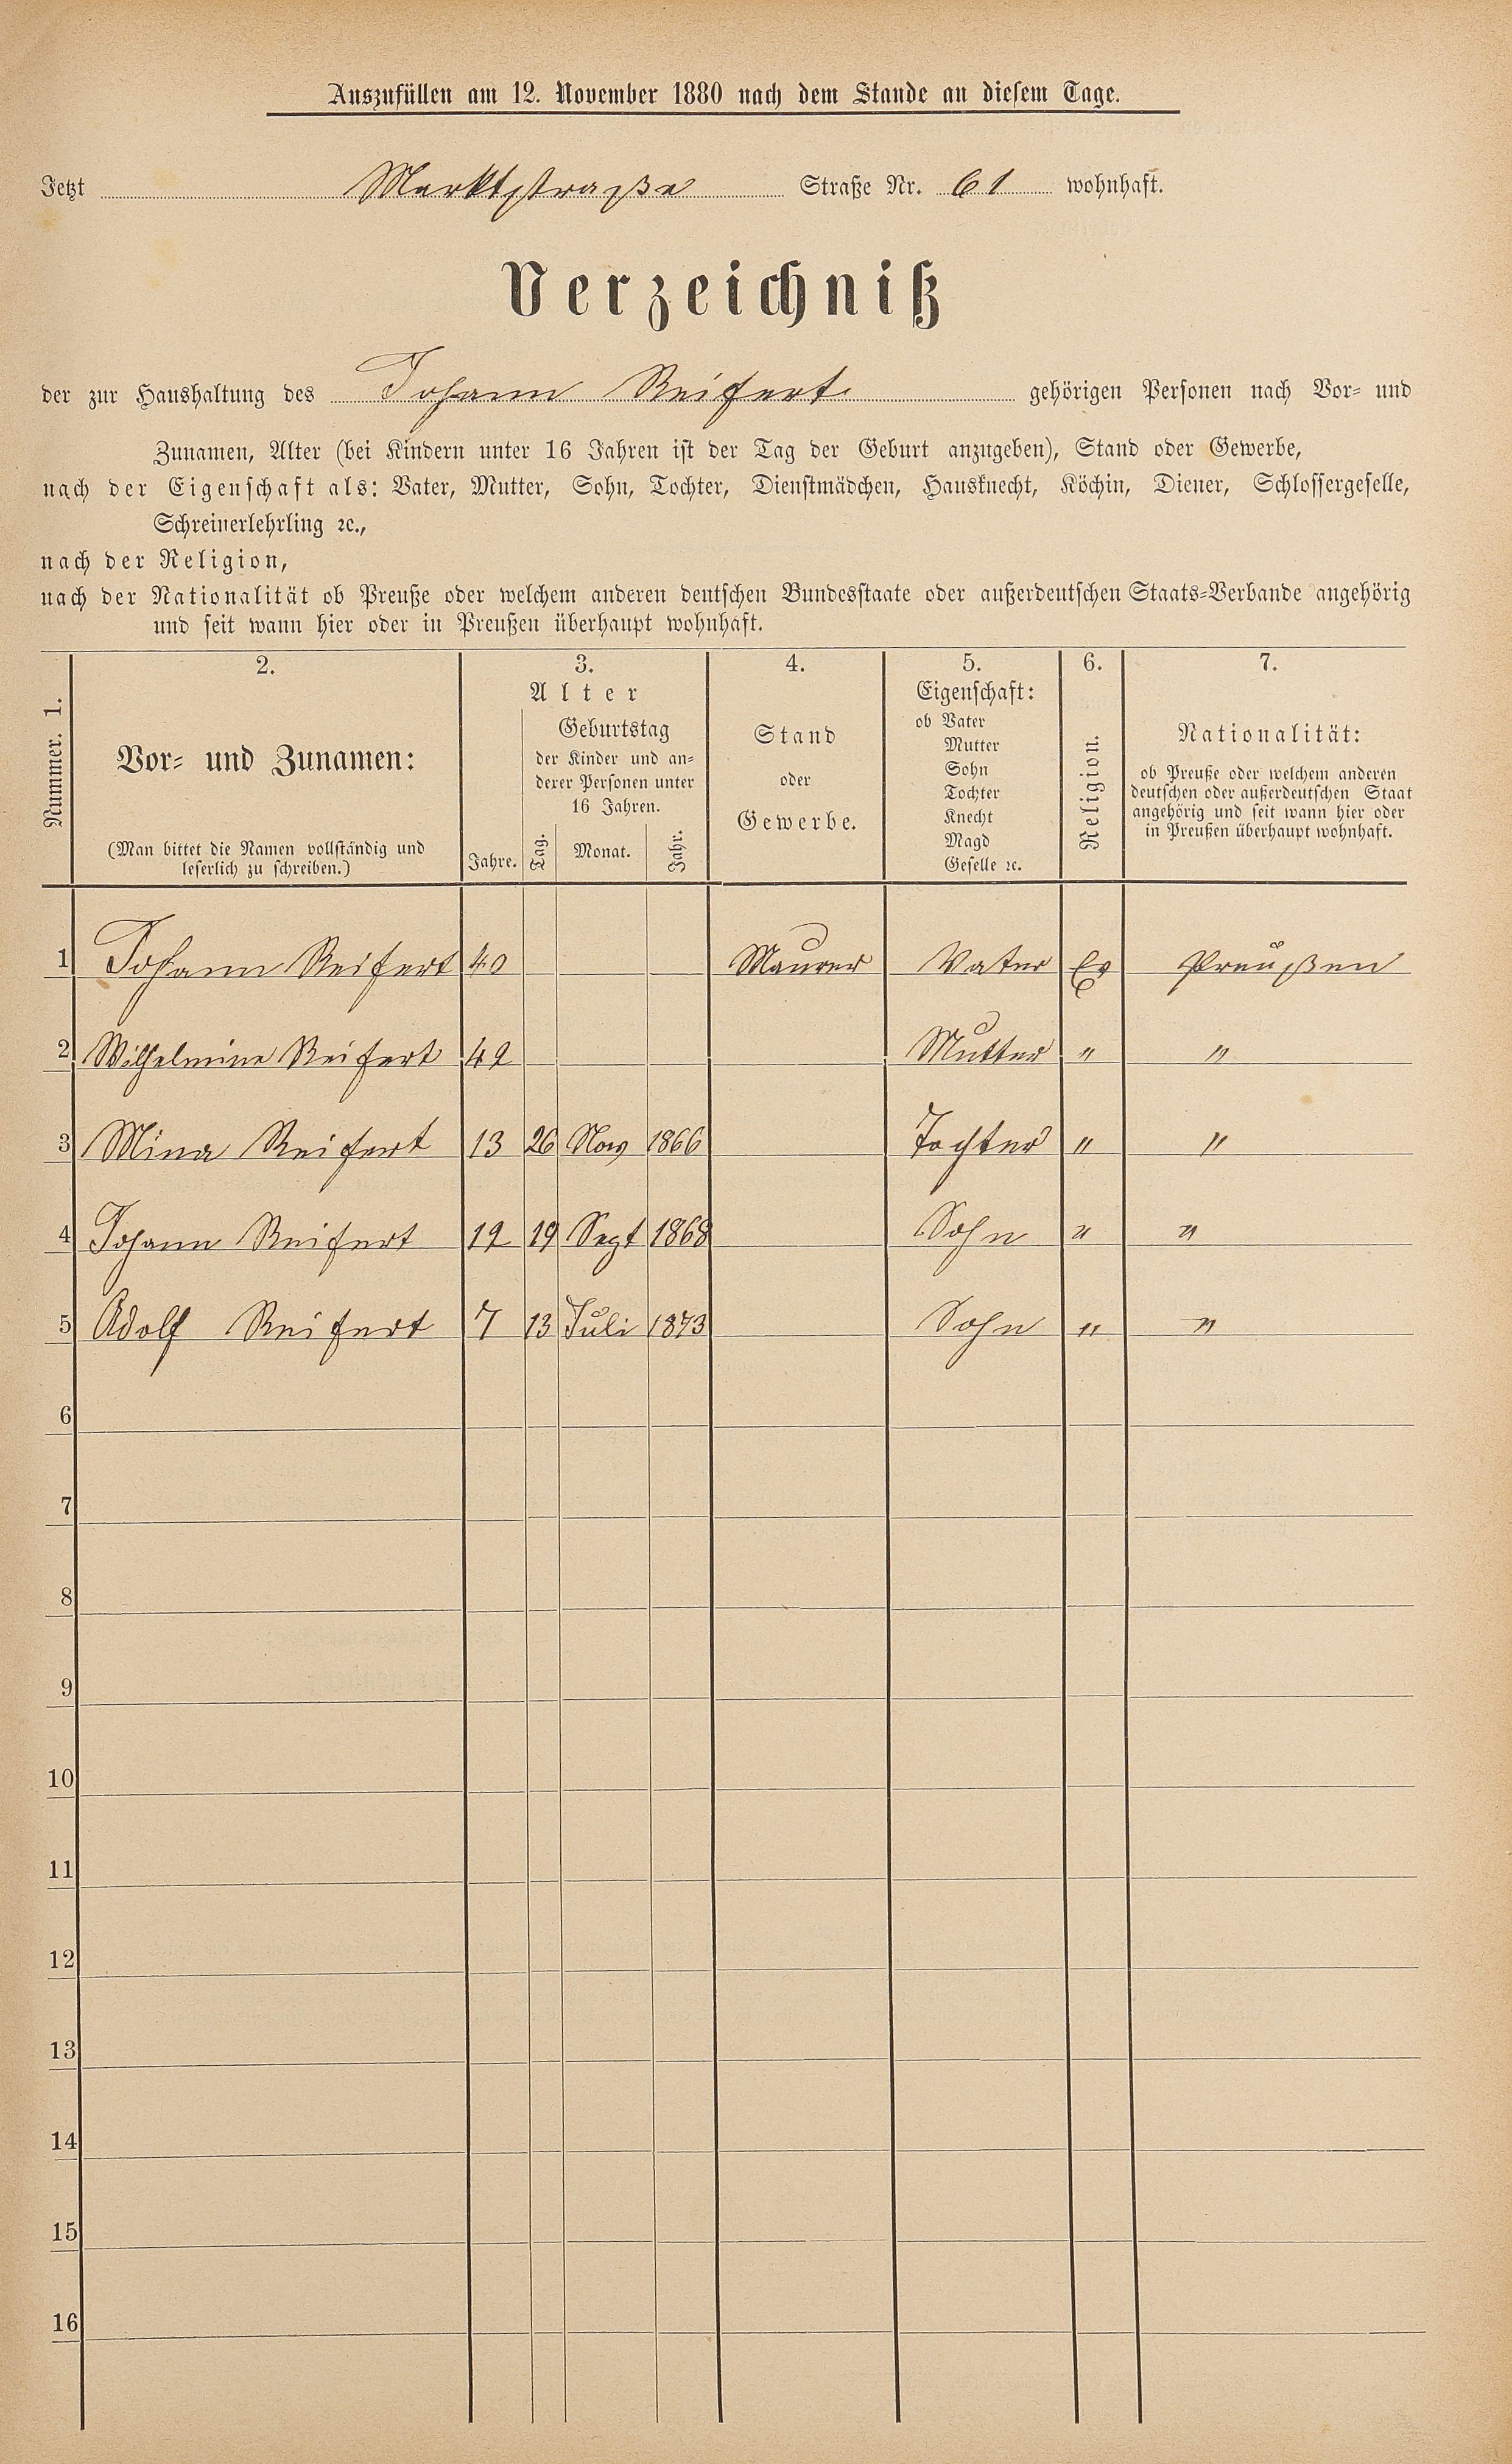 Auszufüllen am 12. November 1880 nach dem Stande an diesem Tage.
Jetzt Marktstraße Straße Nr. 61 wohnhaft.
Verzeichniß
der zur Haushaltung des Johann Reifert gehörigen Personen nach Vor- und
Zunamen, Alter (bei Kindern unter 16 Jahren ist der Tag der Geburt anzugeben), Stand oder Gewerbe,
nach der Eigenschaft als: Vater, Mutter, Sohn, Tochter, Dienstmädchen, Hausknecht, Köchin, Diener, Schlossergeselle,
Schreinerlehrling ꝛc.,
nach der Religion,
nach der Nationalität ob Preuße oder welchem anderen deutschen Bundesstaate oder außerdeutschen Staats-Verbande angehörig
und seit wann hier oder in Preußen überhaupt wohnhaft.
Nummer. 1.
2.
Vor- und Zunamen:
(Man bittet die Namen vollständig und
leserlich zu schreiben.)
3.
Alter
Jahre.
Geburtstag
der Kinder und an-
derer Personen unter
16 Jahren.
Tag. Monat. Jahr.
4.
Stand
oder
Gewerbe.
5.
Eigenschaft:
ob Vater
Mutter
Sohn
Tochter
Knecht
Magd
Geselle ꝛc.
6.
Religion.
7.
Nationalität:
ob Preuße oder welchem anderen
deutschen oder außerdeutschen Staat
angehörig und seit wann hier oder
in Preußen überhaupt wohnhaft.
1 Johann Reifert 40 Maurer Vater Ev Preußen
2 Wilhelmine Reifert 42 Mutter " "
3 Mina Reifert 13 26 Nov 1866 Tochter " "
4 Johann Reifert 12 19 Sept 1868 Sohn " "
5 Adolf Reifert 7 13 Juli 1873 Sohn " "
6
7
8
9
10
11
12
13
14
15
16